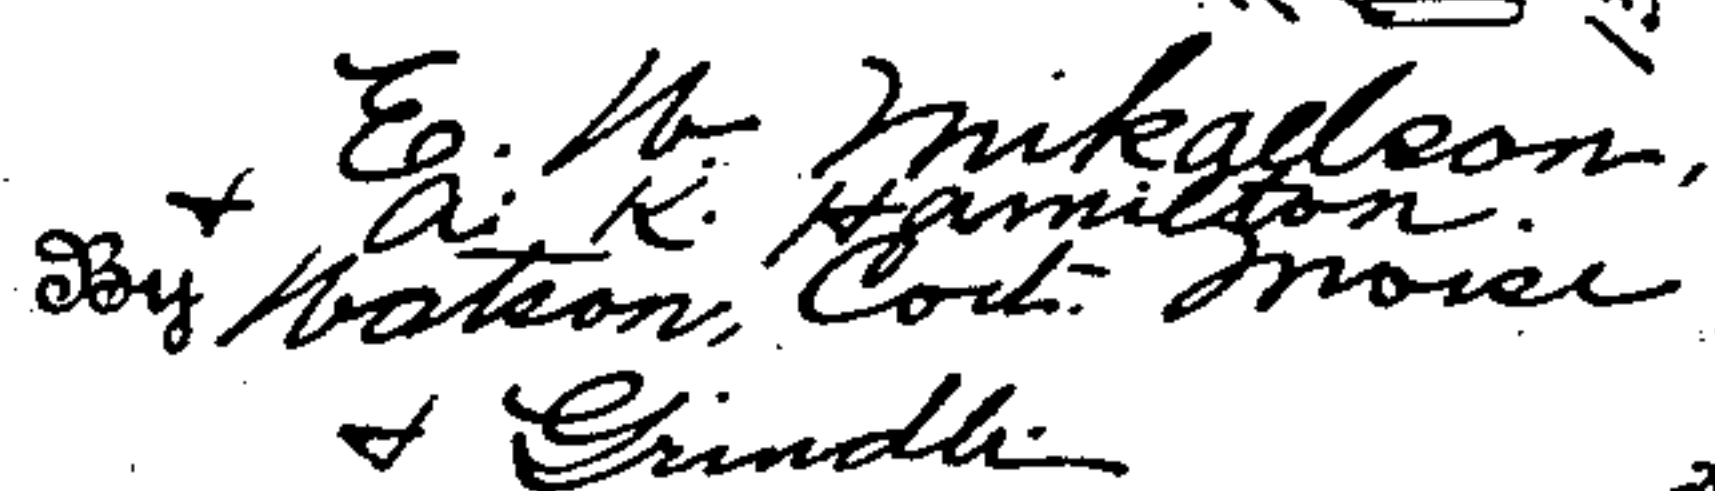 E. W. Mikaelson,
& A. K. Hamilton.
By Watson, Coit, Morse
& Grindle